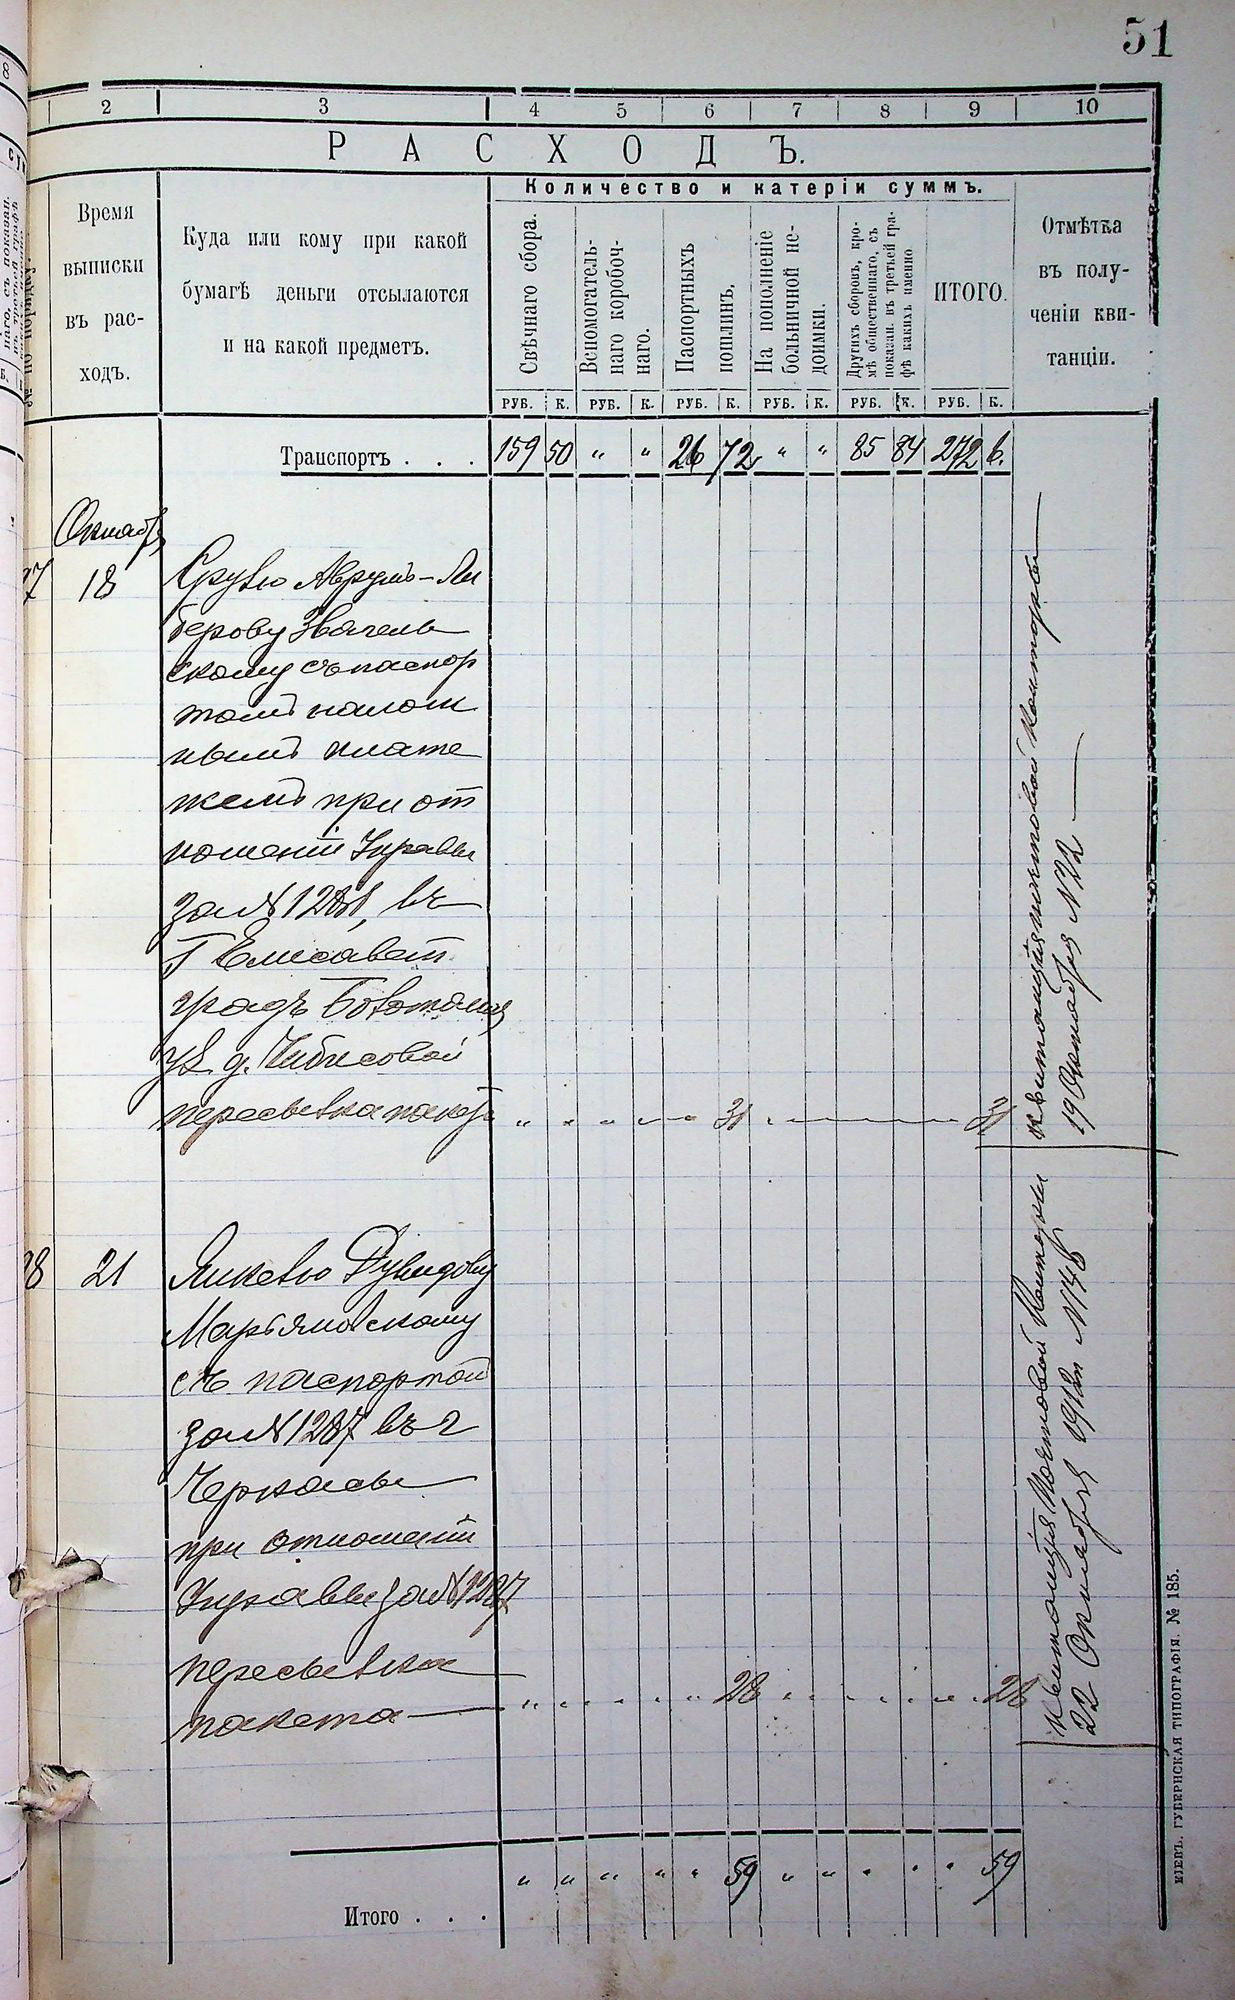 51
2 3 4 5 6 7 8 9 10
РАСХОДЪ.
Количество и катерiи суммъ.
Время выписки въ расходъ.
Куда или кому при какой
бумагѣ деньги отсылаются
и на какой предметъ.
Свѣчнаго сбора.
Вспомогатель-
наго коробоч-
наго.
Паспортныхъ
пошлинъ.
На пополненiе
больничной не-
доимки.
Другихъ сборовъ, кро-
мѣ общественнаго, съ
показан. въ третьей гра-
фѣ какихъ именно
ИТОГО.
Отмѣтка
въ полу-
ченiи кви-
танцiи.
РУБ. К. РУБ. К. РУБ. К. РУБ. К. РУБ. К. РУБ. К.
Транспортъ . . . 159 50 " " 26 72 " " 85 84 272 6.
Октября
18
Срулю Аврумъ-Ли
берову Звагель
скому съ паспор
томъ налож
нымъ плате
жемъ при от
ношенiи Управы
за №1281, въ
Г Елисавет
градъ
ул д. Чибисовой
пересылка пакета " " " " " 31 " 31
Квитанцiя почтовой конторы
19 Октября №22
21
Янкелю Дувидову
Марьяновскому
съ паспортомъ
за №1287 въ г
Черкасы
при отношенiи
Управы за №1287
пересылка
пакета " " " " " 28 " " " " " 28
Квитанцiя Почтовой Конторы
22 Октября 191 г №146
" " " " " 59 " " " " " 59
Итого . . .
КIЕВЪ. ГУБЕРНСКАЯ ТИПОГРАФIЯ. № 185.